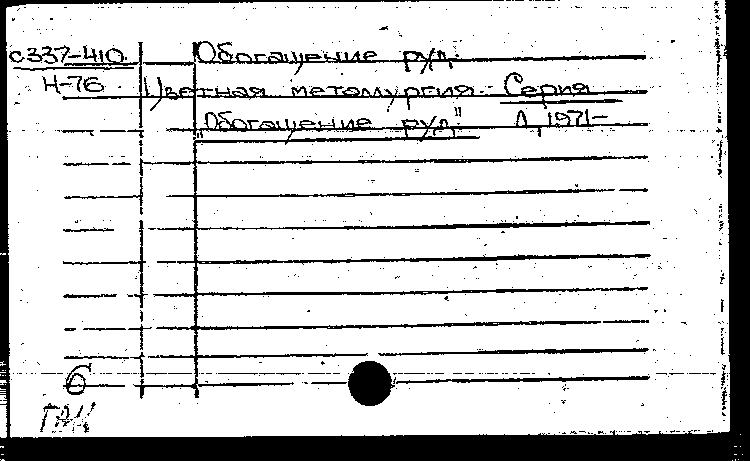 С337-410 Обогащение руд.
Н-76 Цветная металлургия. Серия
"Обогащение руд" Л, 1971-
б
ГАК